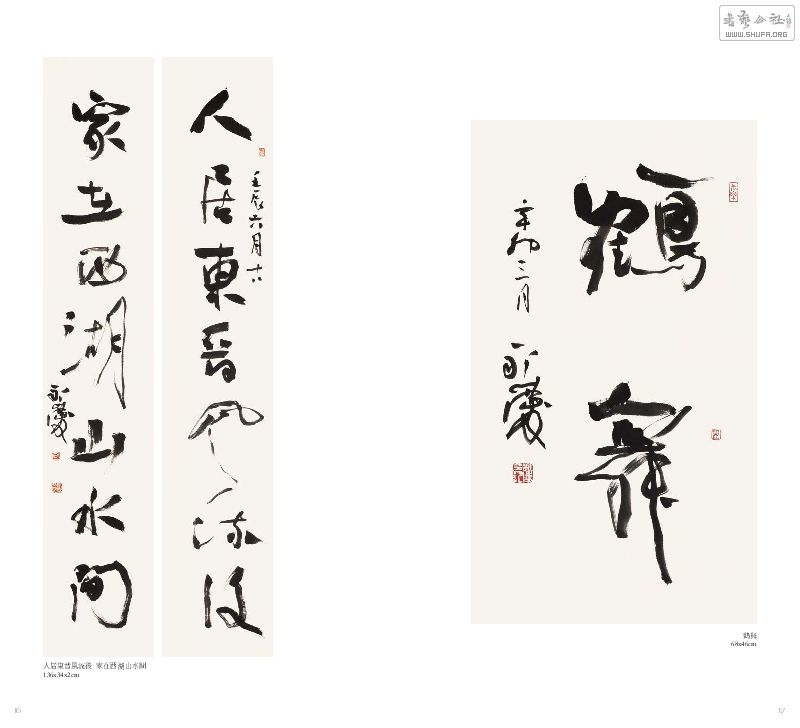 書藝公社
WWW.SHUFA.ORG
人居東晉風流後
壬辰六月十六
家在西湖山水間
永慶
人居東晉風流後 家在西湖山水間
136x34x2cm
鶴舞
辛卯三月
永慶
鶴舞
68x46cm
16
17